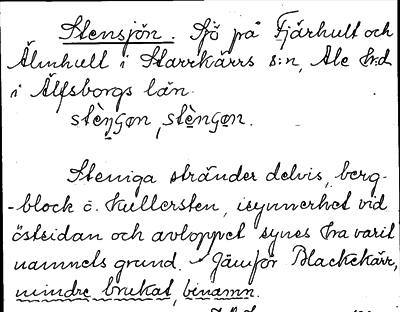 Stensjön. Sjö på Fjärhult och
Älmhult i Starrkärrs s:n, Ale h:d
i Älfsborgs län.
stèŋgøn, stèngøn.
Steniga stränder delvis, berg-
-block o. kullersten, isynnerhet vid
östsidan och avloppet synes ha varit
namnets grund. - Jämför Blackekärr,
mindre brukat, binamn.